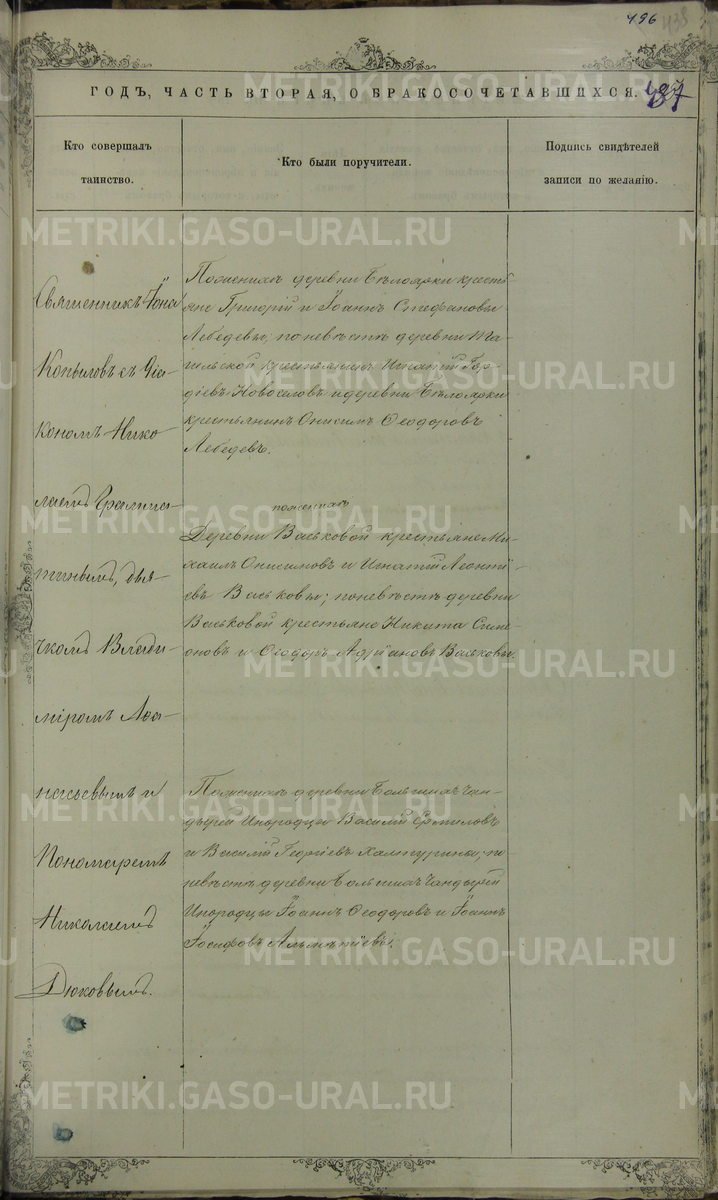 496
438
ГОДЪ, ЧАСТЬ ВТОРАЯ, О БРАКОСОЧЕТАВШИХСЯ.
437
Кто совершалъ
таинство.
Кто были поручители.
Подпись свидѣтелей
записи по желанію.
Священникъ Іона
Копыловъ съ Діа-
кономъ Нико-
лаемъ Грамма-
тинымъ, дья-
чкомъ Влади-
міромъ Аѳа-
насьевымъ и
Пономаремъ
Николаемъ
Дюковымъ.
По женихѣ деревни Бѣлоярки кресть-
яне Григорій и Іоаннъ Стефановы
Лебедевы; по невѣстѣ деревни Та-
гильской крестьянинъ Игнатій Гор-
діевъ Новоселовъ и деревни Бѣлоярки
крестьянинъ Онисимъ Ѳеодоровъ
Лебедевъ.
по женихѣ
Деревни Васьковой крестьяне Ми-
хаилъ Онисимовъ и Игнатій Леонті-
евъ Васьковы; по невѣстѣ деревни
Васьковой крестьяне Никита Симе-
оновъ и Ѳеодоръ Адріановъ Васьковы.
По женихѣ деревни Большихъ
Инородцы Василій Ермиловъ
и Василій Георгіевъ Халтурины; по
невѣстѣ деревни Большихъ
Инородцы Іоаннъ Ѳеодоровъ и Іоаннъ
Іосифовъ Альметіевы.
METRIKI.GASO-URAL.RU